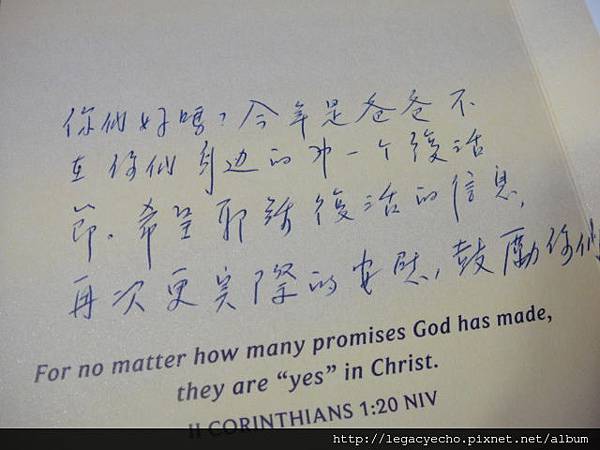 你们好嗎?今年是爸爸不
在你们身边的第一个復活
節。希望耶穌復活的信息,
再次更实際的安慰,鼓勵你们
For no matter how many promises God has made,
they are “yes” in Christ.
II CORINTHIANS 1:20 NIV
http://legacyecho.pixnet.net/album